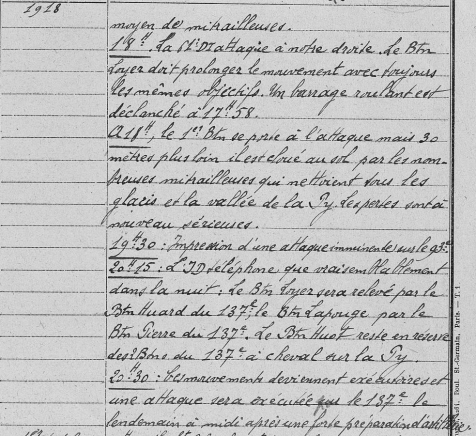 1918
moyen de mitrailleuses.
18H. La 21e DI attaque à notre droite. Le Btn
Loyer doit prolonger le mouvement avec toujours
les mêmes objectifs. Un barrage roulant est
déclanché à 17H58.
A 18H, le 1er Btn se porte à l'attaque mais 30
mètres plus loin il est cloué au sol par les nom-
breuses mitrailleuses qui nettoient tous les
glacis et la vallée de la Py. Les pertes sont à
nouveau sérieuses.
19H30 : Impression d'une attaque imminente sur le 93e.
20H15 : L'ID téléphone que vraisemblablement
dans la nuit : Le Btn Loyer sera relevé par le
Btn Huard du 137e, le Btn Lapouge par le
Btn Pierre du 137e. Le Btn Huot reste en réserve
des 2 Btns du 137e à cheval sur la Py.
20H30 : Ces mouvements deviennent exécutoires et
une attaque sera exécutée par le 137e le
lendemain à midi après une forte préparation d'artillerie
Boul. St-Germain, Paris — T. 1